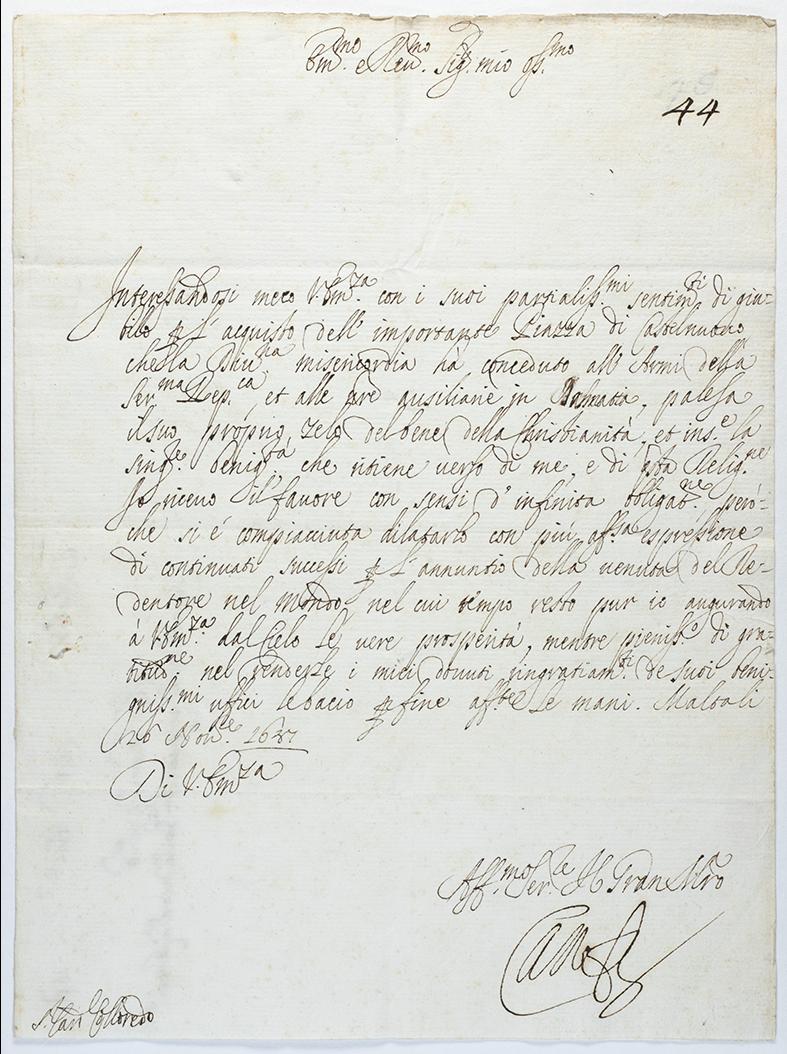 Em.mo e Rev.mo Sig.r mio oss.mo
44
Interessandosi meco V. Em.za con i suoi partialiss.mi sentim.ti di giu-
bilo p l'acquisto dell'importante Piazza di Castelnuovo
che la Diu.na misericordia hà conceduto all'Armi della
Ser.ma Rep.ca, et alle nre ausiliarie in Dalmatia, palesa
il suo proprio zelo del bene della Christianità, et ins.e la
sing.re benig.tà che ritiene verso di me, e di q.sta Relig.ne
Io riceuo il fauore con sensi d'infinita obligat.ne però-
che si é compiacciuta dilatarlo con più aff.sa espressione
di continuati successi p l'annuntio della venuta del Re-
dentore nel Mondo, nel cui tempo resto pur io augurando
à V. Em.za dal Cielo le vere prosperità, mentre pieniss.o di gra-
titud.ne nel renderle i miei douuti ringratiam.ti de suoi beni-
gniss.mi uffici le bacio p fine aff.te le mani. Malta li
26 Nou.e 1687
Di V. Em.za
Aff.mo Ser.re Il Gran Mro
Carafa
S. Card.l Colloredo